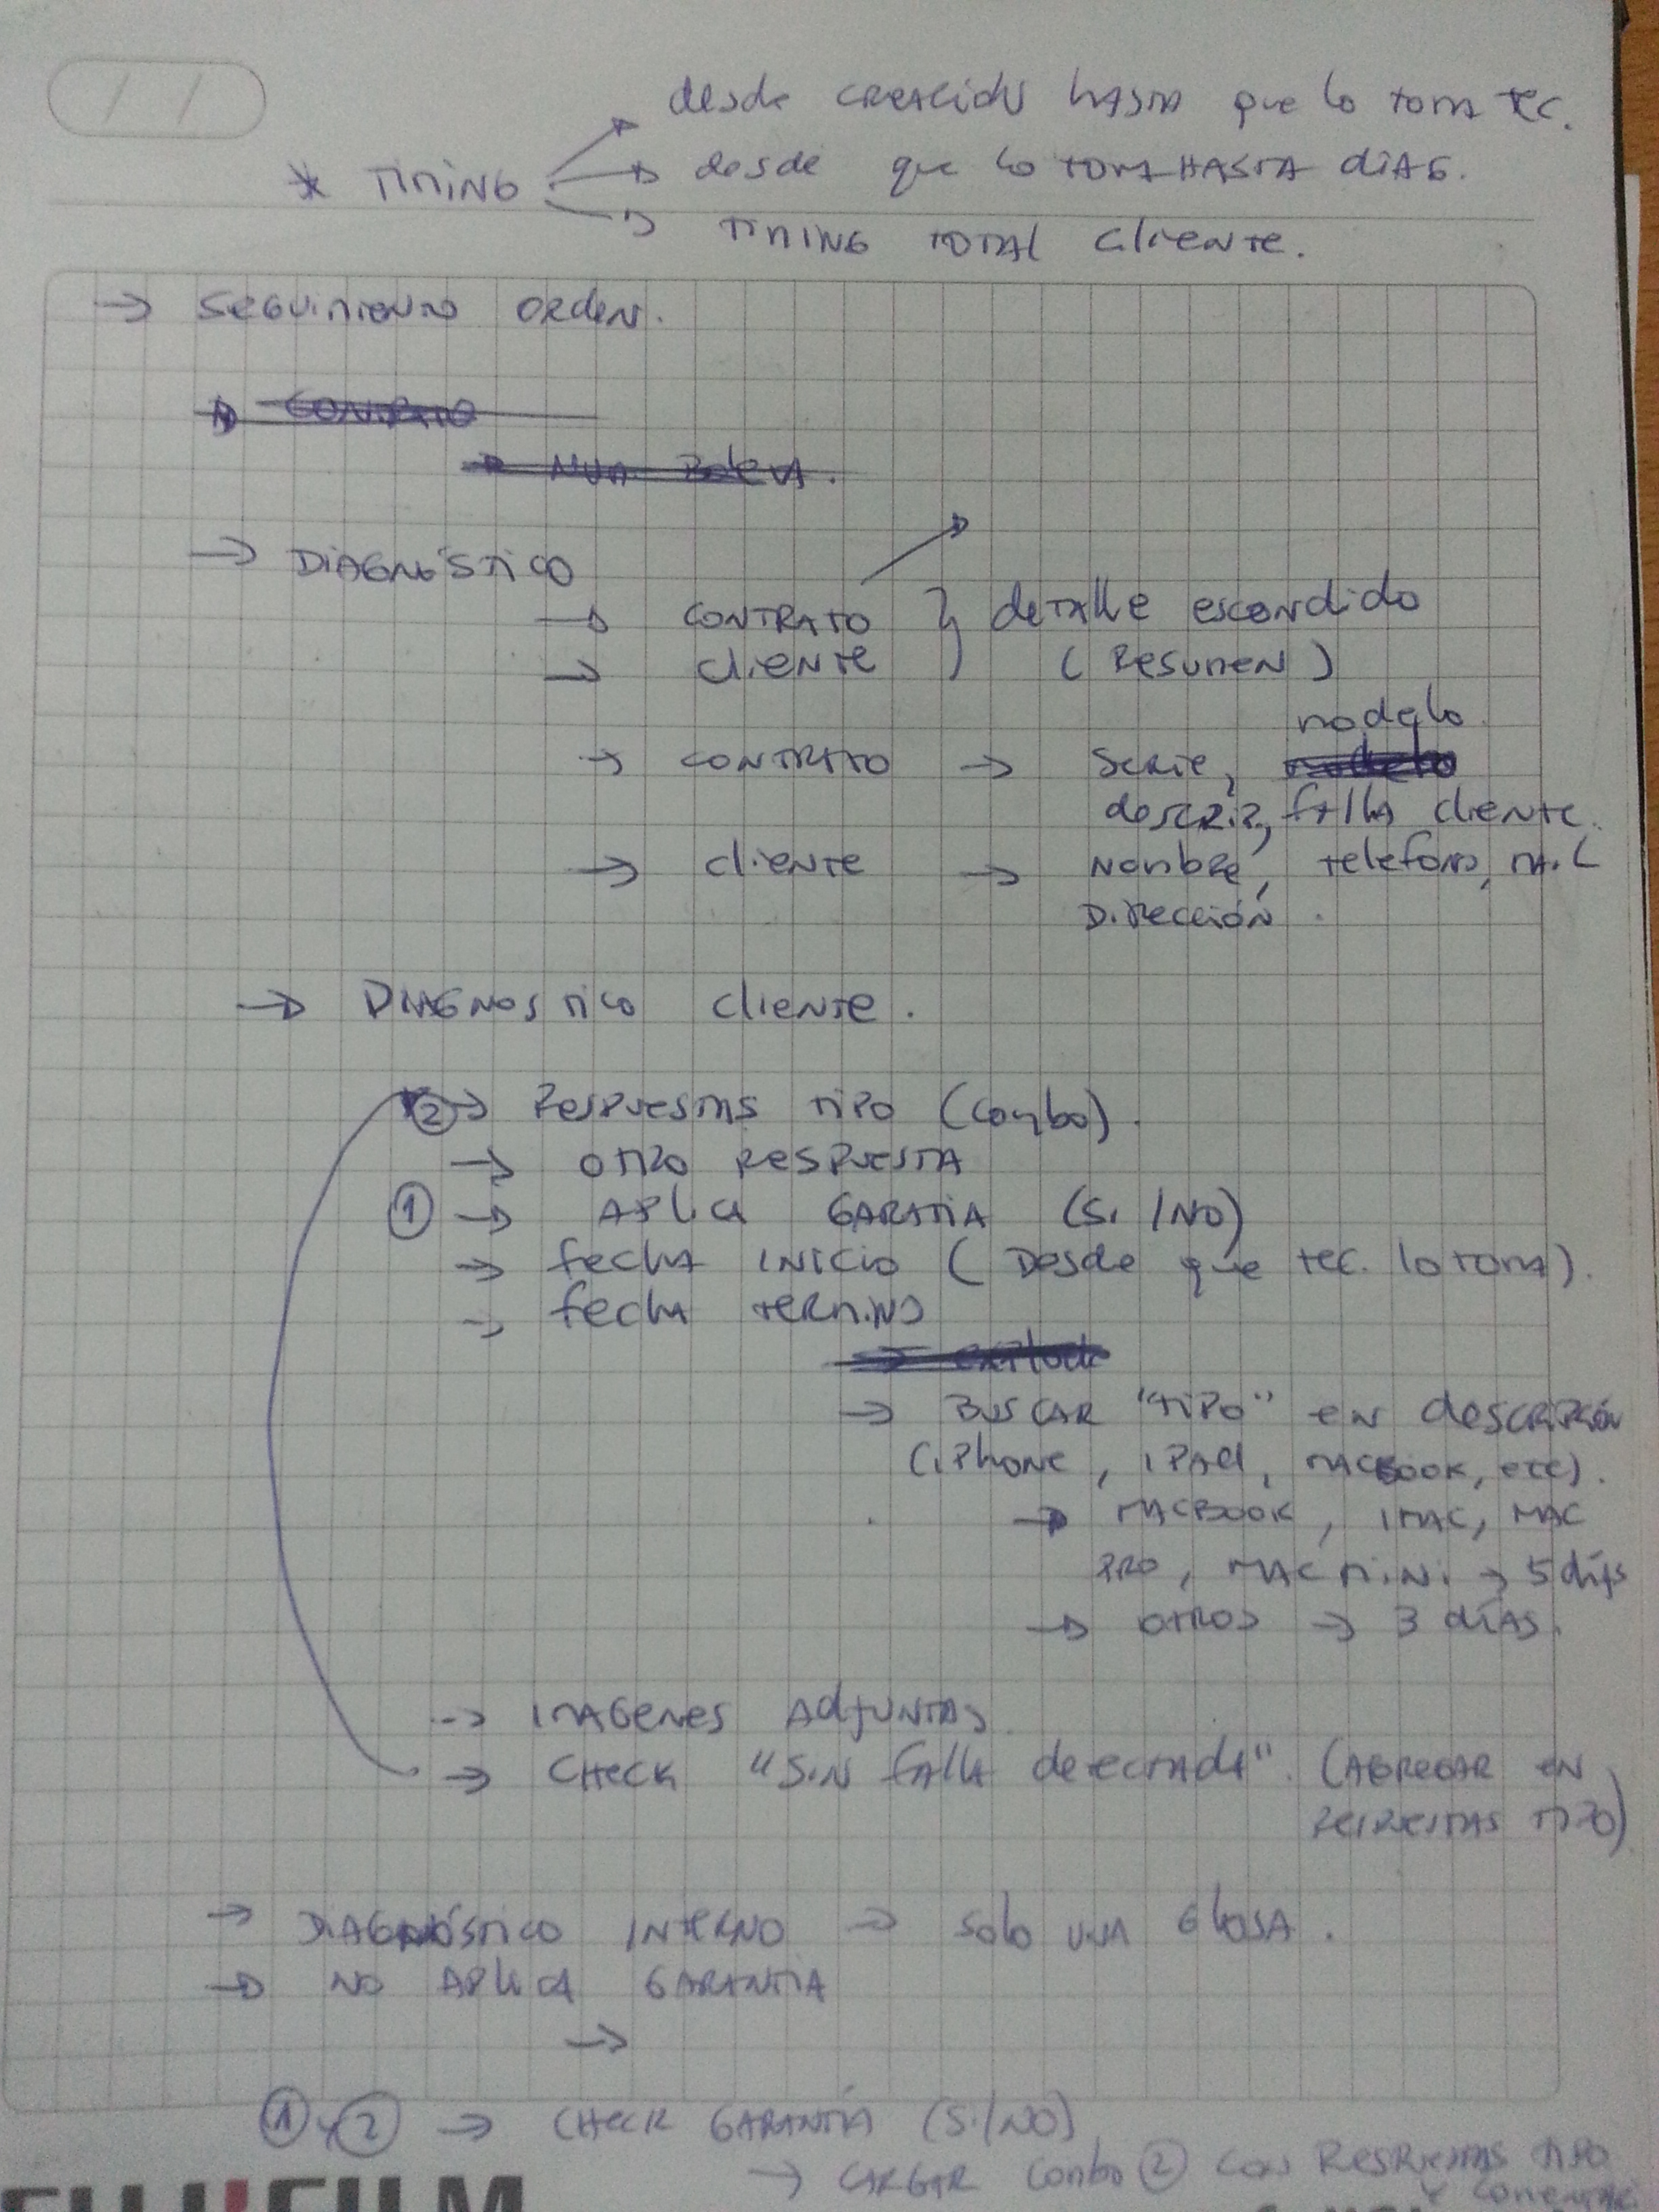 desde creación hasta que lo toma tec.
* Timing → desde que lo toma hasta diag.
→ Timing total cliente.
→ Seguimiento orden.
→ Contrato
→ Num. Boleta.
→ Diagnóstico
→ contrato } detalle escondido
→ cliente (Resumen)
modelo
→ contrato → serie, modelo
descrip, falla cliente.
→ cliente → Nombre, telefono, mail
Dirección.
→ Diagnostico cliente.
② → Respuestas tipo (combo).
→ otro respuesta
① → Aplica garantia (Si/No)
→ fecha inicio (Desde que tec. lo toma).
→ fecha termino
→ Buscar "tipo" en descripción
(iPhone, iPad, MacBook, etc).
→ MacBook, iMac, Mac
Pro, Mac mini → 5 días
→ otros → 3 días.
→ Imagenes adjuntas.
→ Check "Sin falla detectada". (Agregar en
respuestas tipo)
→ Diagnóstico interno → solo una glosa.
→ No aplica garantia
→
① y ② → Check garantía (Si/No)
→ cargar combo ② con respuestas tipo
y
FUJIFILM